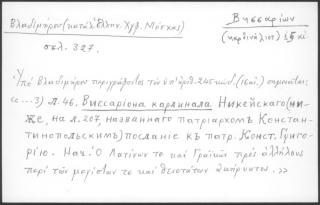 Βλαδιμήρου (κατάλ. Ἑλλην. Χγφ. Μόσχας)
σελ. 327.
Βησσαρίων
(καρδινάλιος) 15 αἰ
Ὑπὸ Βλαδιμήρου περιγράφοντος τὸν ὑπ' ἀριθ. 245 κώδ. (16 αἰ.) σημειοῦται:
«...3) л. 46. Виссаріона кардинала Никейскаго (ни-
же, на л. 207, названнаго патріархомъ Констан-
тинопольскимъ) посланіе къ патр. Конст. Григо-
рію. Нач. Ὁ Λατίνων τε καὶ Γραικῶν πρὸς ἀλλήλους
περὶ τῶν μεγίστων τε καὶ θειοτάτων »